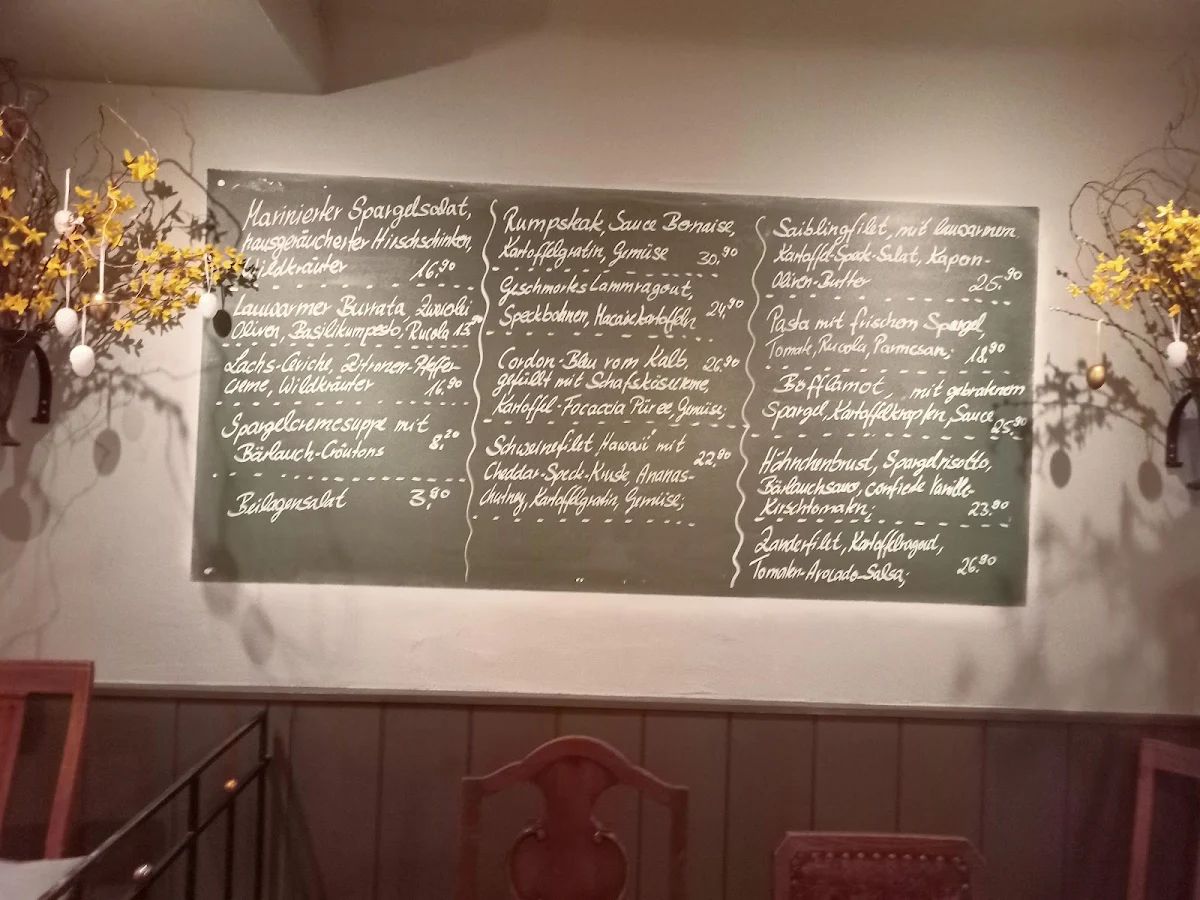 Marinierter Spargelsalat,
hausgeräucherter Hirschschinken,
Wildkräuter 16,90
Lauwarmer Burrata, Zwiebel
Oliven, Basilikumpesto, Rucola 13,90
Lachs-Ceviche, Zitronen-Pfeffer-
creme, Wildkräuter 16,90
Spargelcremesuppe mit
Bärlauch-Croûtons 8,20
Beilagensalat 3,90
Rumpsteak, Sauce Bernaise,
Kartoffelgratin, Gemüse 30,90
Geschmortes Lammragout,
Speckbohnen, Macairekartoffeln 24,90
Cordon-Bleu vom Kalb, 26,90
gefüllt mit Schafskäsecreme,
Kartoffel-Focaccia Püree, Gemüse;
Schweinefilet "Hawaii" mit
Cheddar-Speck-Kruste, Ananas- 22,90
chutney, Kartoffelgratin, Gemüse;
Saiblingfilet, mit lauwarmem
Kartoffel-Speck-Salat, Kapern-
Oliven-Butter 25,90
Pasta mit frischen Spargel,
Tomate, Rucola, Parmesan; 18,90
Böfflamot, mit gebratenem
Spargel, Kartoffelkrapfen, Sauce 25,90
Hähnchenbrust, Spargelrisotto,
Bärlauchsauce, confierte Vanille-
Kirschtomaten; 23,90
Zanderfilet, Kartoffelragout,
Tomaten-Avocado-Salsa; 26,90